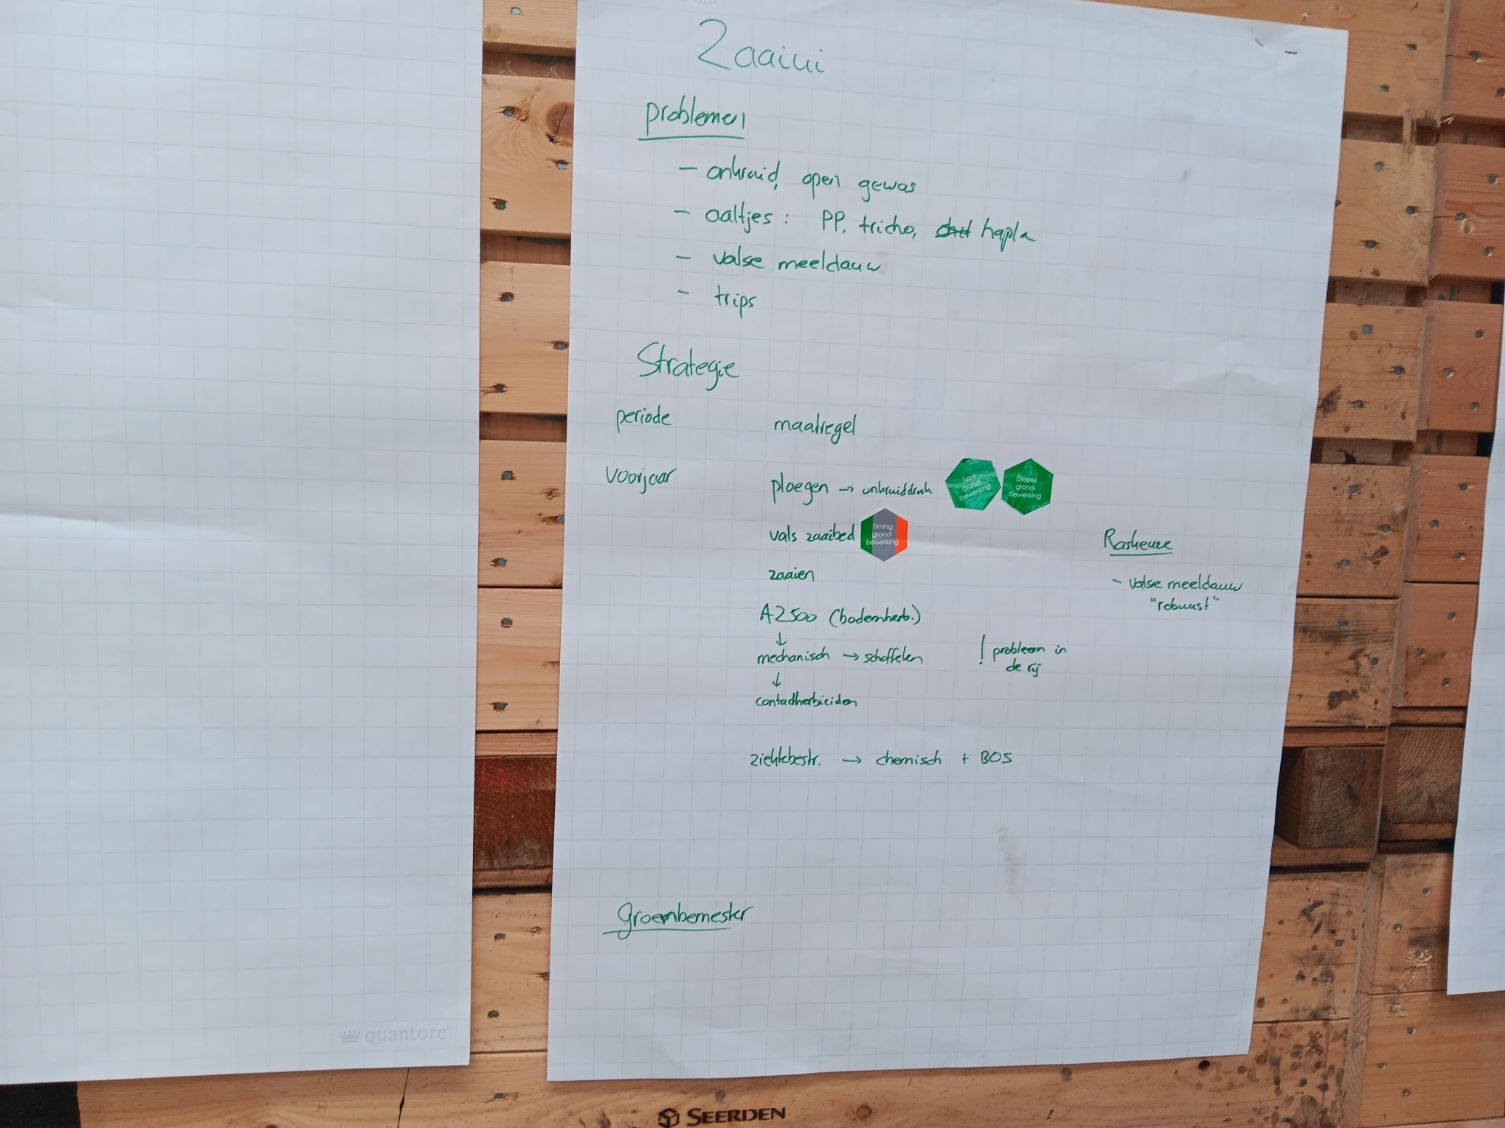 Zaaiui
problemen
- onkruid, open gewas
- aaltjes: PP, tricho, hapla
- valse meeldauw
- trips
Strategie
periode maatregel
voorjaar ploegen → onkruiddruk
Type grond-bewerking
Diepte grond-bewerking
vals zaaibed
Timing grond-bewerking
zaaien
A2500 (bodemherb.)
↓
mechanisch → schoffelen ! probleem in de rij
↓
contactherbiciden
ziektebestr. → chemisch + BOS
Raskeuze
- valse meeldauw
"robuust"
groenbemester
quantore
SEERDEN